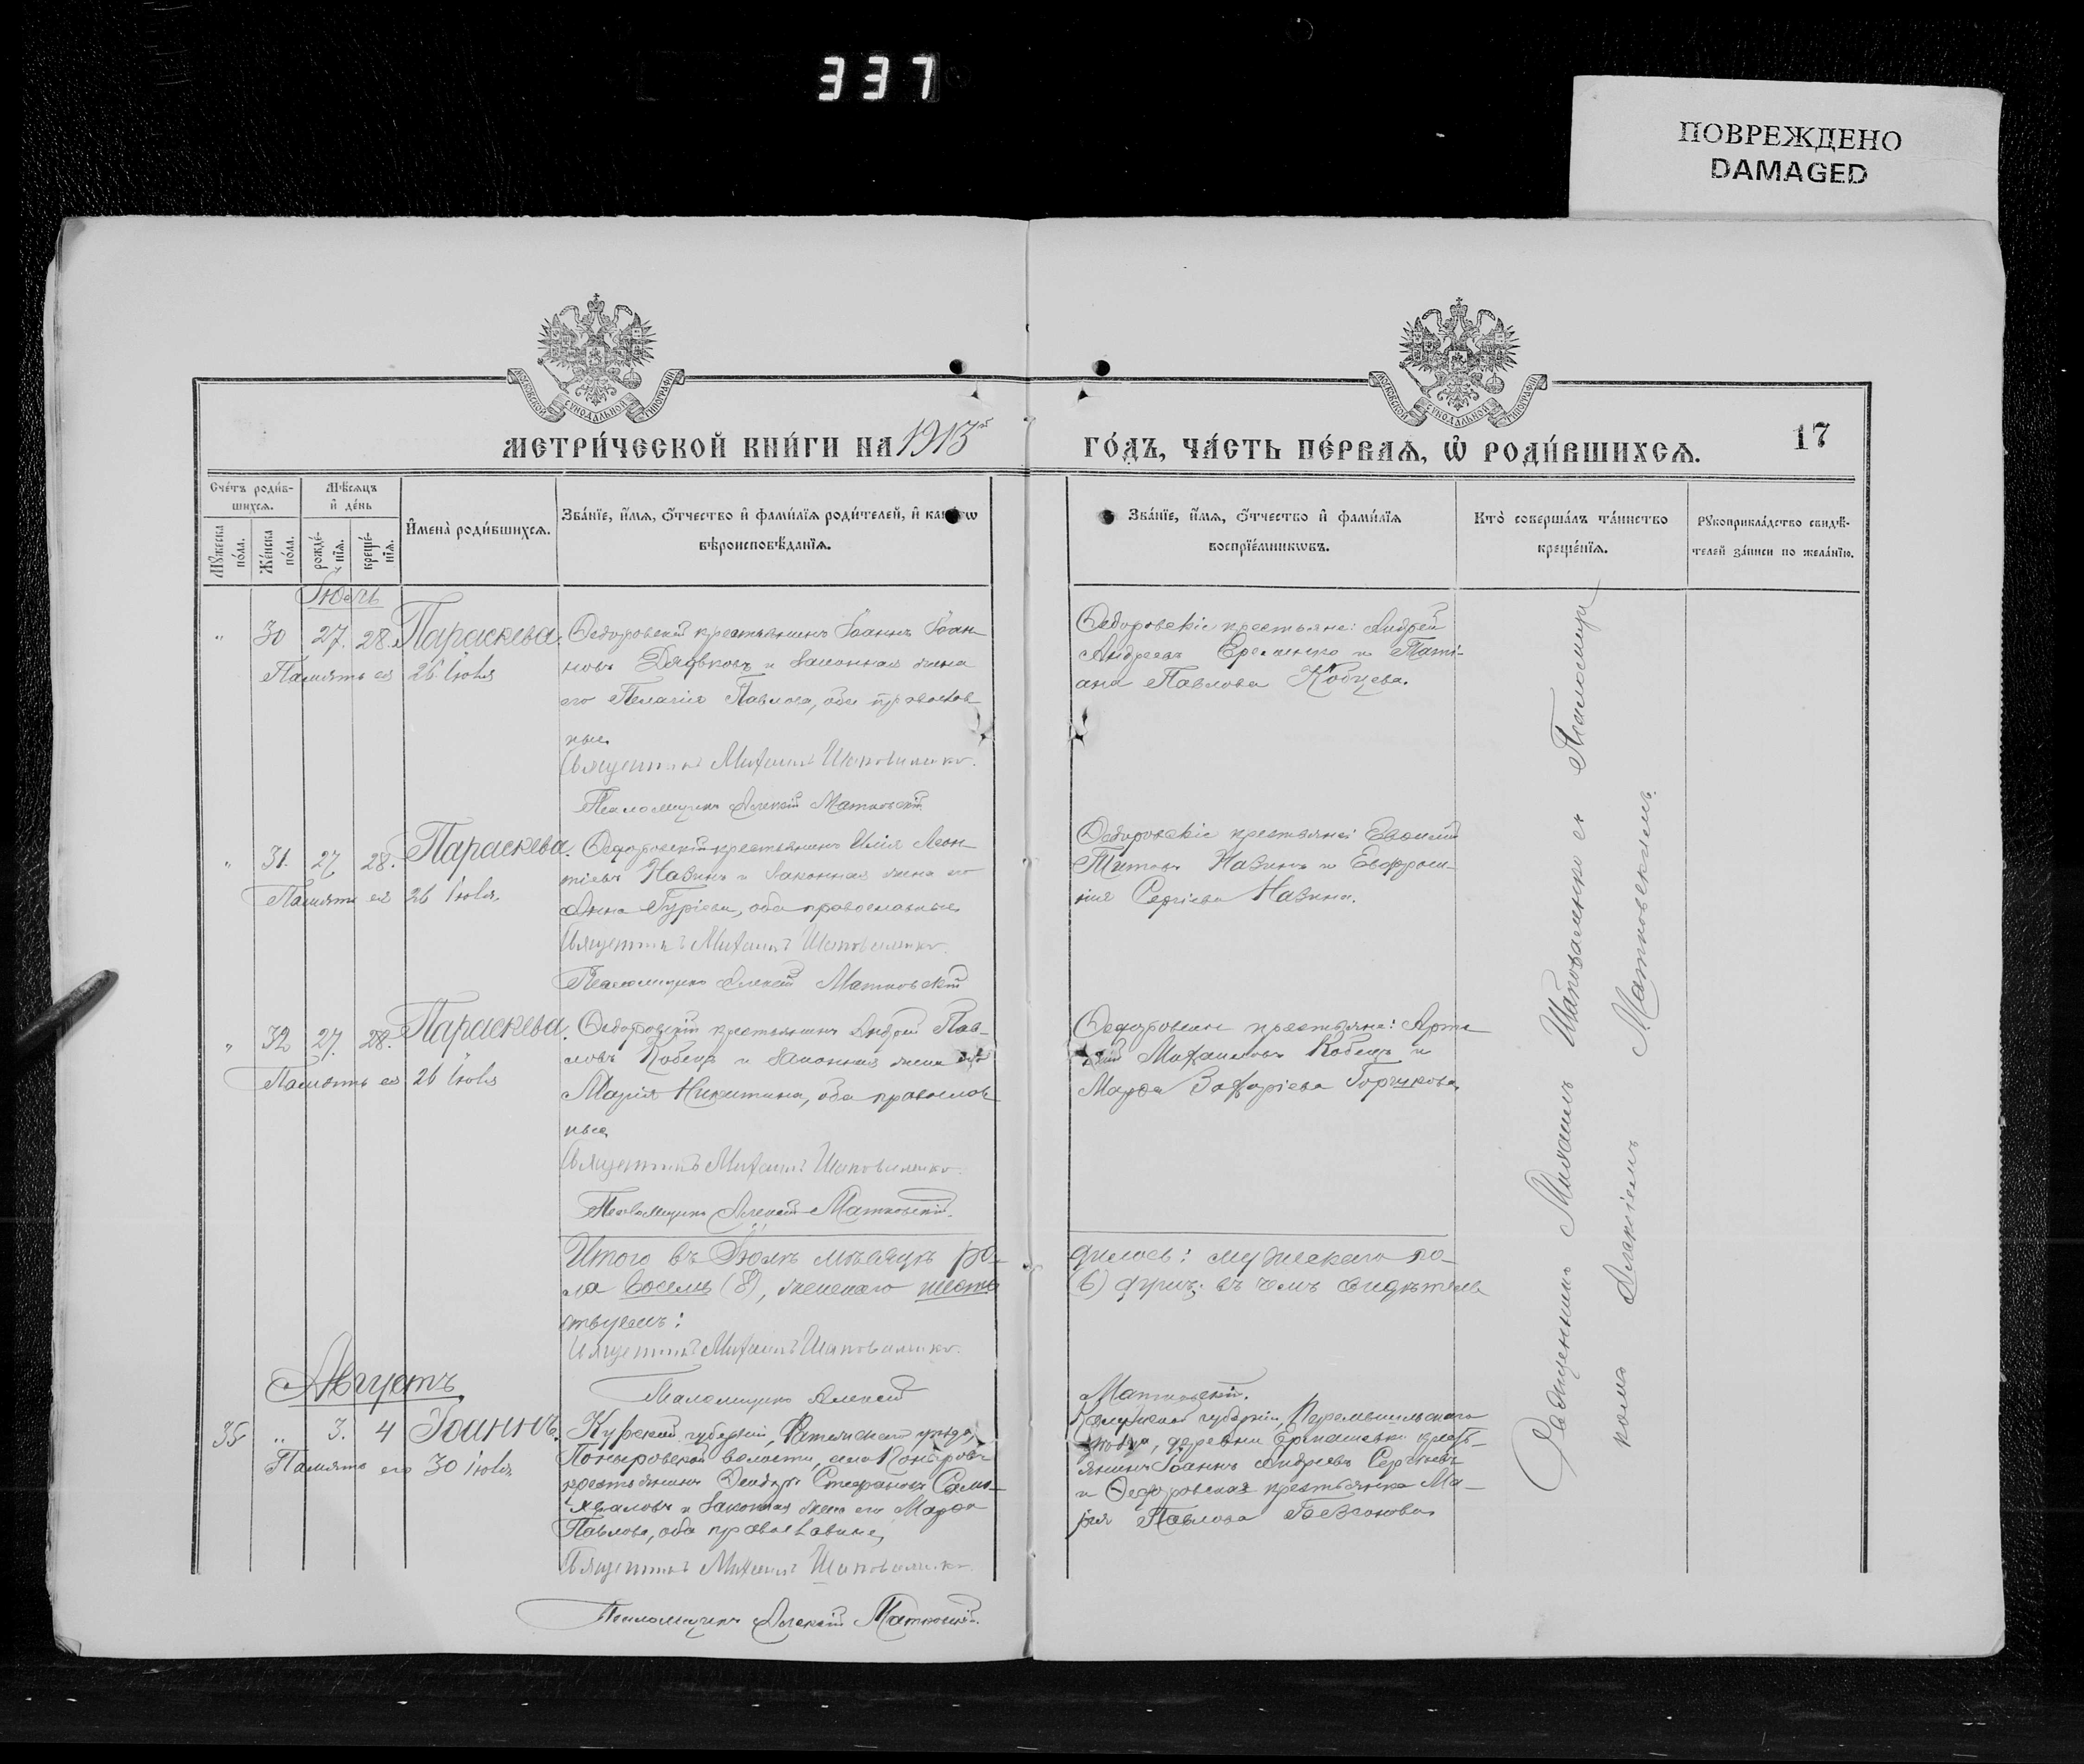 337
ПОВРЕЖДЕНО
DAMAGED
МОСКОВСКОЙ СѴНОДАЛЬНОЙ ТИПОГРАФІИ
МОСКОВСКОЙ СѴНОДАЛЬНОЙ ТИПОГРАФІИ
МЕТРИ́ЧЕСКОЙ КНИ́ГИ НА 1913й
ГО́ДЪ, ЧА́СТЬ ПЕ́РВАѦ, Ѡ РОДИ́ВШИХСѦ.
17
Сче́тъ роди́в-
шихсѧ.
Мꙋ́жеска по́ла.
Же́нска по́ла.
Мѣ́сѧцъ
и҆ де́нь
рожде́-
нїѧ.
креще́-
нїѧ.
И҆мена̀ роди́вшихсѧ.
Зва́нїе, и҆́мѧ, ѻ҆́тчество и҆ фами́лїѧ роди́телей, и҆ како́гѡ
вѣроисповѣ́данїѧ.
Зва́нїе, и҆́мѧ, ѻ҆́тчество и҆ фами́лїѧ
воспрїе́мникѡвъ.
Кто̀ соверша́лъ та́инство
креще́нїѧ.
Рꙋкоприкла́дство свидѣ́-
телей за́писи по жела́нїю.
Іюль
" 30 27. 28. Параскева.
Память ея 26 Іюля
Ѳедоровскій крестьянинъ Іоаннъ Іоан-
новъ Дядьковъ и законная жена
его Пелагія Павлова, оба православ-
ные.
Священникъ Михаилъ Шаповаленко.
Псаломщикъ Алексій Матковскій.
Ѳедоровскіе крестьяне: Андрей
Андреевъ Еременко и Таті-
ана Павлова Кобцева.
" 31. 27. 28. Параскева.
Память ея 26 Іюля.
Ѳедоровскій крестьянинъ Илія Леон-
тіевъ Навинъ и законная жена его
Анна Гуріева, оба православные.
Священникъ Михаилъ Шаповаленко.
Псаломщикъ Алексій Матковскій
Ѳедоровскіе крестьяне: Евѳимій
Титовъ Навинъ и Евфроси-
нія Сергіева Навина.
" 32 27. 28. Параскева.
Память ея 26 Іюля
Ѳедоровскій крестьянинъ Андрей Пав-
ловъ Кобецъ и законная жена его
Марія Никитина, оба православ-
ные.
Священникъ Михаилъ Шаповаленко.
Псаломщикъ Алексій Матковскій.
Ѳедоровскіе крестьяне: Арте-
мій Михаиловъ Кобецъ и
Марѳа Захаріева Горчукова.
Итого въ Іюлѣ мѣсяцѣ ро-
дилось: мужескаго по-
ла восемь (8), женскаго шесть
(6) душъ; въ чемъ свидѣтель-
ствуемъ:
Священникъ Михаилъ Шаповаленко.
Псаломщикъ Алексій
Матковскій.
Августъ
35 " 3. 4 Іоаннъ.
Память его 30 Іюля
Курской губерніи, Фатежскаго уѣзда,
Поныровской волости, села Поныровъ
крестьянинъ Ѳеодоръ Стефановъ Само-
хваловъ и законная жена его Марѳа
Павлова, оба православные,
Священникъ Михаилъ Шаповаленко.
Псаломщикъ Алексій Матковскій.
Калужской губерніи, Перемышльскаго
уѣзда, деревни Ермашевки крест-
янинъ Іоаннъ Андреевъ Сергѣевъ
и Ѳедоровская крестьянка Ма-
рія Павлова Безчонова.
Священникъ Михаилъ Шаповаленко съ Псаломщи-
комъ Алексіемъ Матковскимъ.